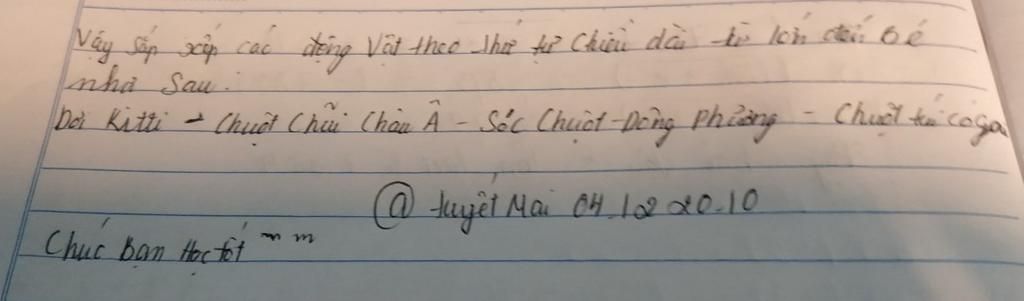 Vậy sắp xếp các động vật theo thứ tự chiều dài từ lớn đến bé
như sau:
Dơi Kitti - Chuột Chũi Châu Á - Sóc Chuột - Đông Phương - Chuột túi có
@ tuyết Mai 04.12.2010
Chúc Bạn Học tốt